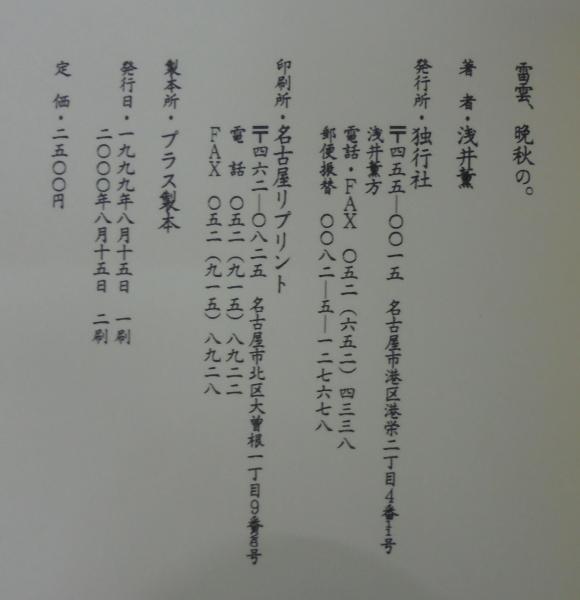 雷雲、晩秋の。
著　者・浅井薫
発行所・独行社
〒四五五―〇〇一五　名古屋市港区港栄二丁目4番11号
浅井薫方
電話・FAX　〇五二（六五二）四三三八
郵便振替　〇〇八二―五―一二七六七八
印刷所・名古屋リプリント
〒四六二―〇八二五　名古屋市北区大曽根一丁目9番8号
電　話　〇五二（九一五）八九二二
FAX　〇五二（九一五）八九二八
製本所・プラス製本
発行日・一九九九年八月十五日　一刷
二〇〇〇年八月十五日　二刷
定　価・二五〇〇円